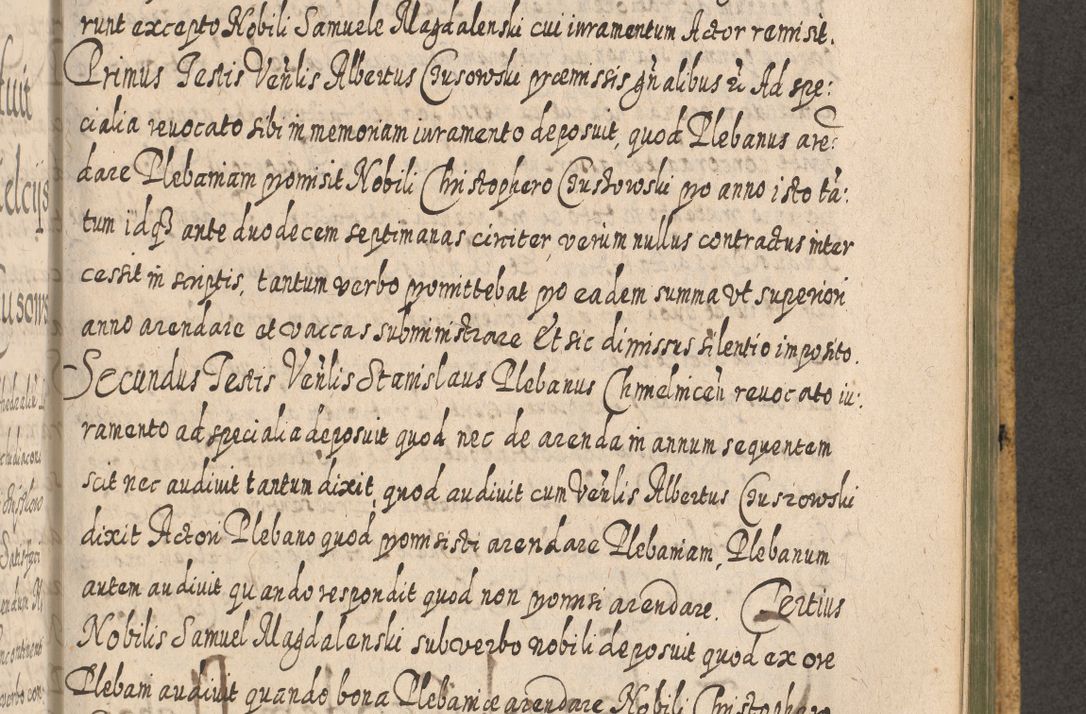 runt excepto Nobili Samuele Magdalenski cui iuramentum Actor remisit.
Primus Testis Venlis Albertus Gusowski præmissis gnalibus et Ad spe:
cialia reuocato sibi in memoriam iuramento deposuit, quod Plebanus are:
dare Plebaniam promisit Nobili Christophero Gustowski pro anno isto ta:
tum idq3 ante duodecem septimanas circiter, verum nullus contractus inter
cessit in scriptis, tantum verbo promittebat pro eadem summa vt superiori
anno arendare et vaccas subministrare Et sic dimissus silentio imposito.
Secundus Testis Venlis Stanislaus Plebanus Chmelnicen revocato iu:
ramento ad specialia deposuit quod nec de arenda in annum sequentem
scit nec audiuit tantum dixit, quod audiuit cum Venlis Albertus Guszowski
dixit Actori Plebano quod promisisti arendare Plebaniam, Plebanum
autem audiuit quando respondit quod non promisi arendare. Tertius
Nobilis Samuel Magdalenski sub verbo nobili deposuit quod ex ore
Plebani audiuit quando bona Plebaniæ arendare Nobili Christophero